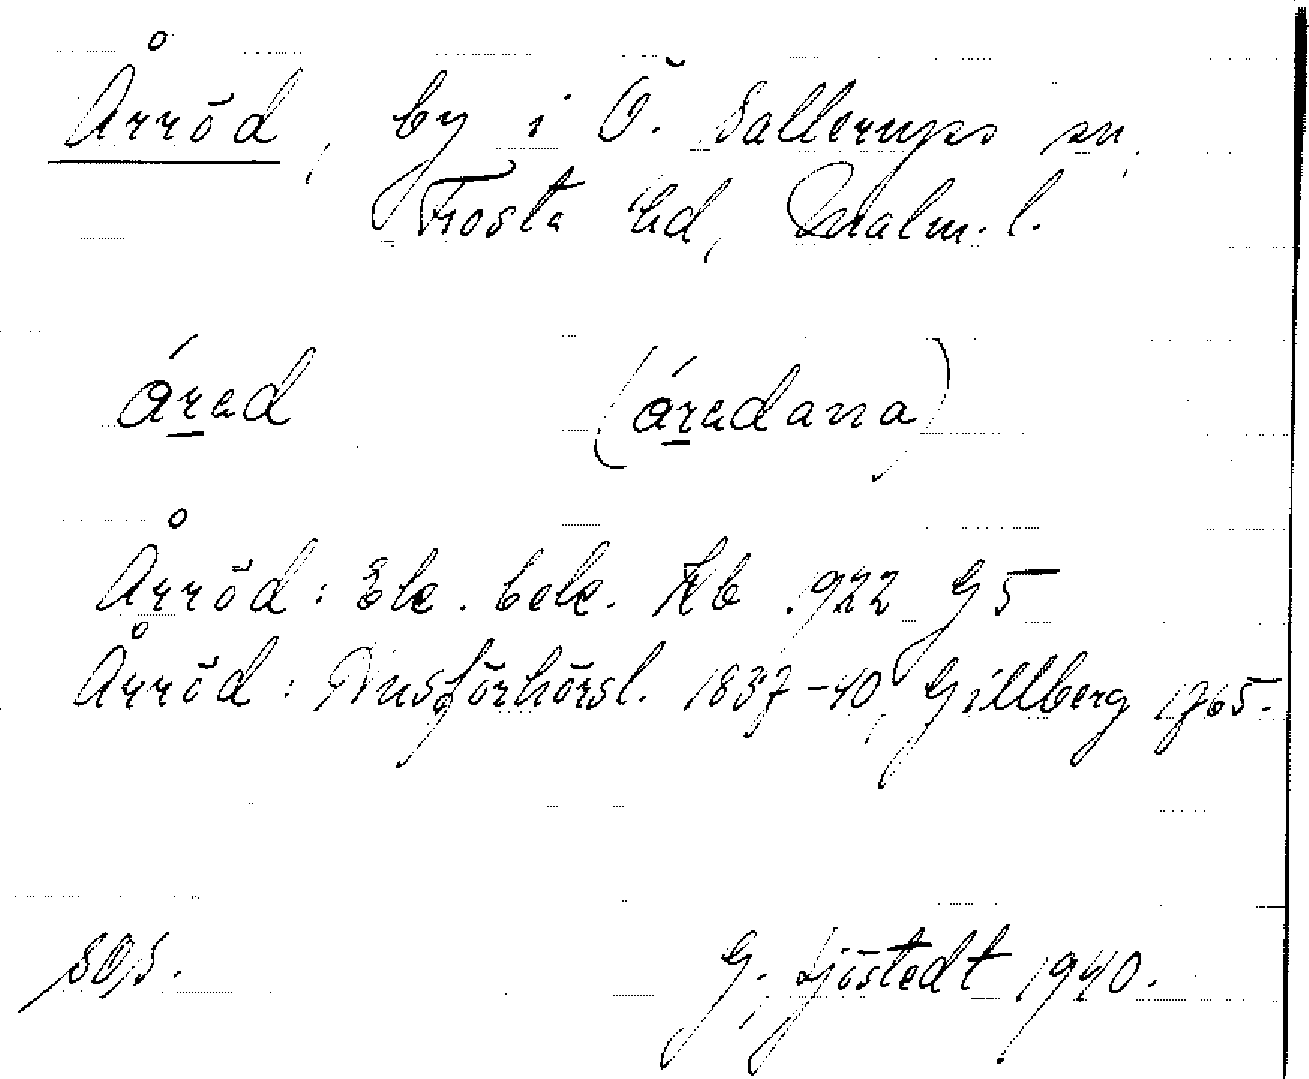 Årröd, by i Ö. Sallerups sn,
Frosta hd, Malm. l.
árad (áradana)
Årröd: Ek. bek. Kb 1922 G5
Årröd: Husförhörsl. 1837-40, Gillberg 1765.
SOS. G. Sjöstedt 1940.